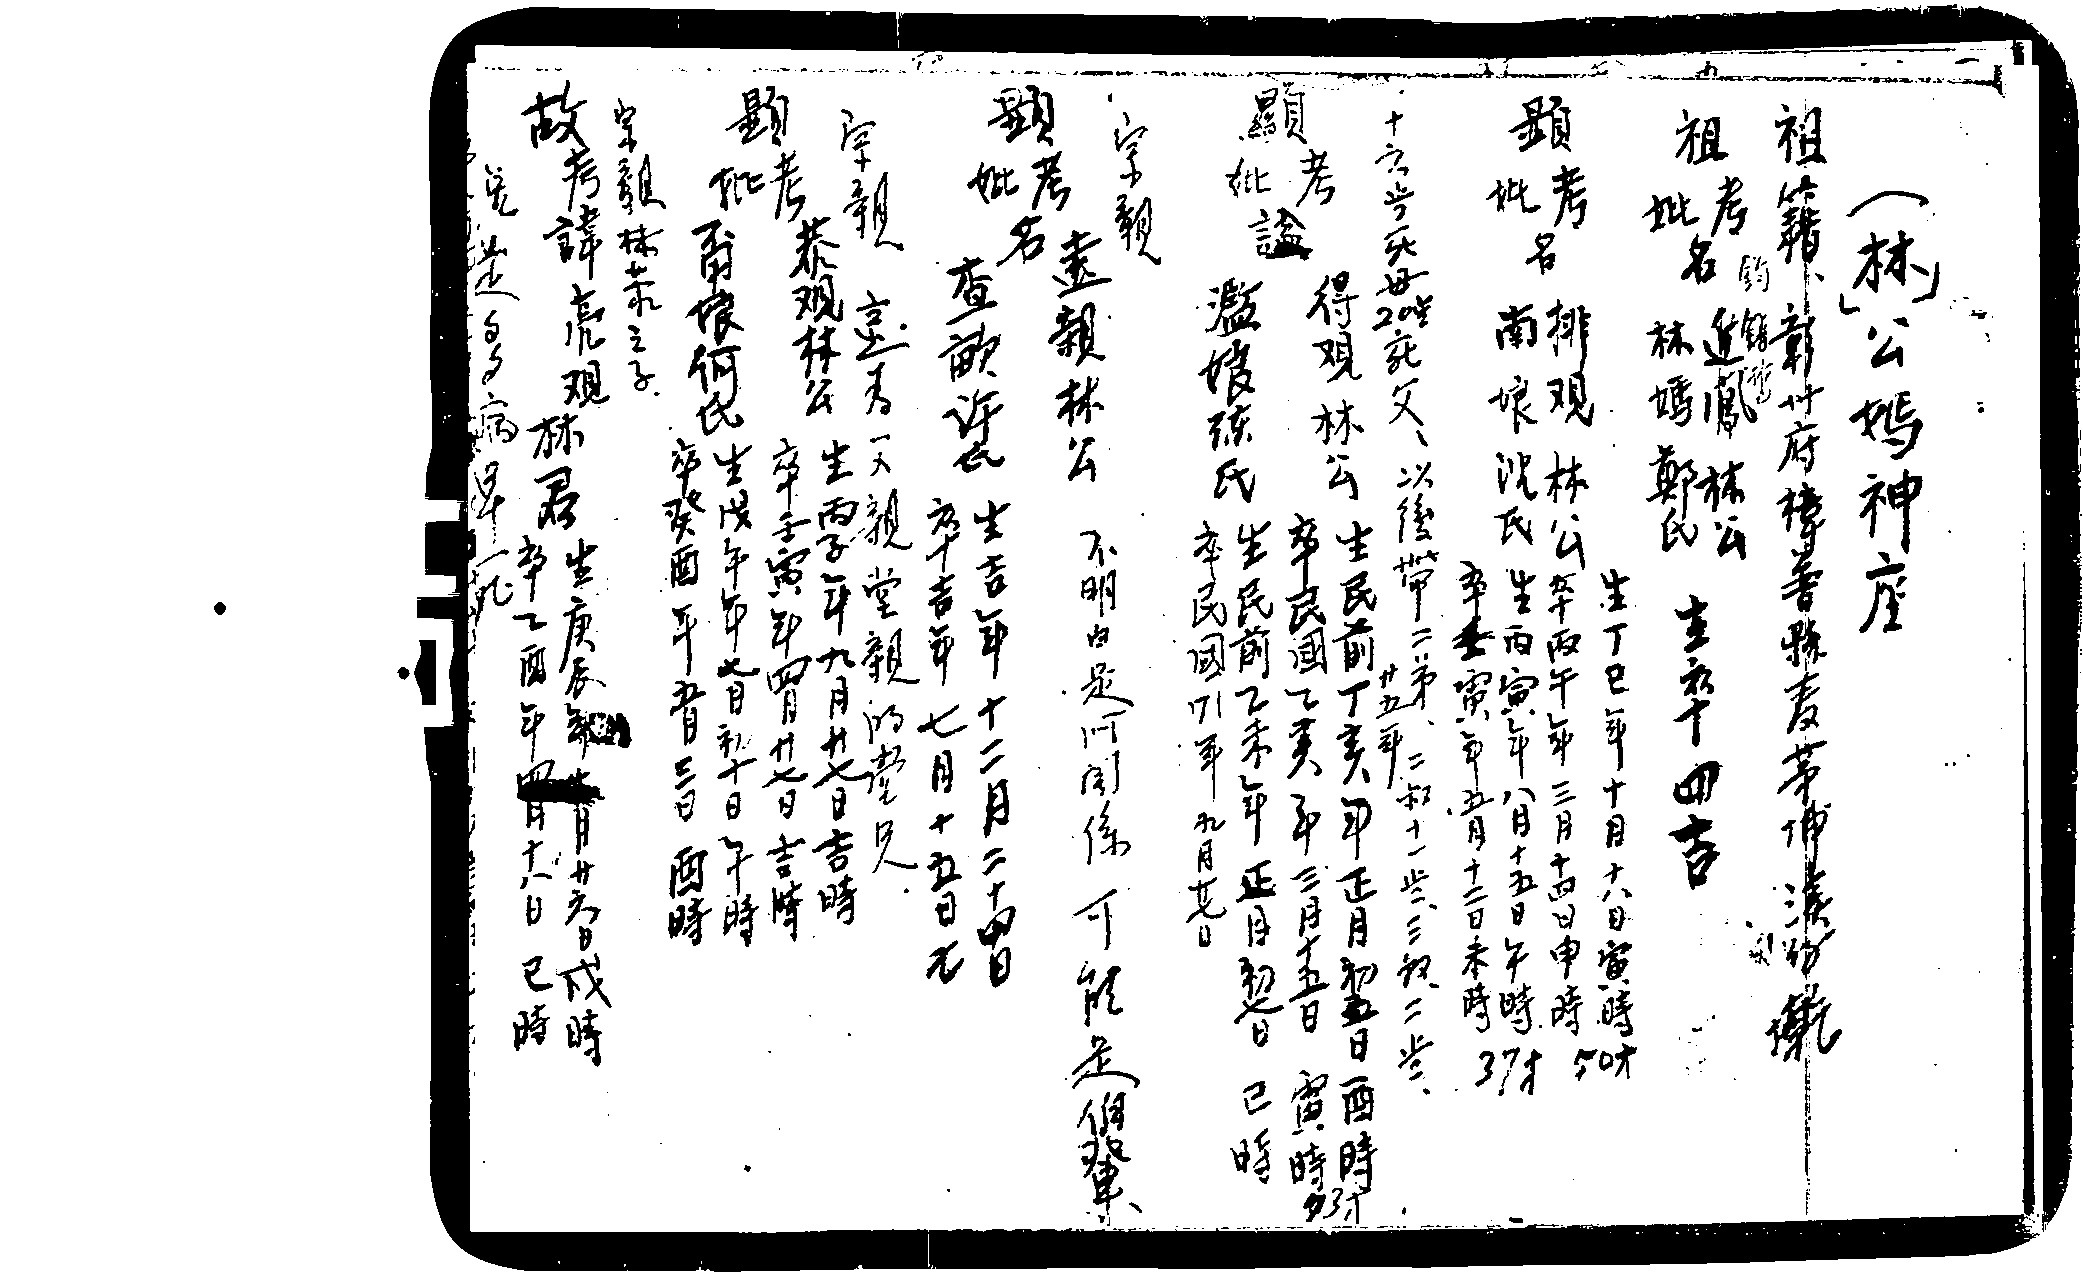 (「林」公媽神座
祖籍、彰廾府樟普縣
祖考名進鳳林公
妣林媽鄭氏
生卒十四吉
顯考名排观林公
生丁巳年十月十八日寅時
卒丙午年三月十四日申時 50才
妣南娘沈氏
生丙寅年八月十五日午時
卒壬寅年五月十二日未時 37才
十六岁死母20岁死父、以後带二弟、二叔十一岁、三叔、二岁、
顯考得观林公
生民前丁亥年正月初五日酉時
廿五年
卒民國乙亥年三月十五日寅時
妣諡濫娘張氏
生民前乙未年正月初七日巳時
卒民國71年九月廿七日
宗親
顯考名遠親林公
不明白是何関係可能是伯輩、
妣查歐許氏
生吉年十二月二十四日
卒吉年七月十五日
宗親
父親堂親的堂兄
顯考恭观林公
生丙子年九月廿七日吉時
卒壬寅年四月廿七日吉時
妣甭娘何氏
生戊午年七月初十日午時
卒癸酉年五月三日酉時
宗親林恭之子
故考諱亮观林君
生庚辰年 月廿六日戌時
卒乙酉年四月十八日巳時